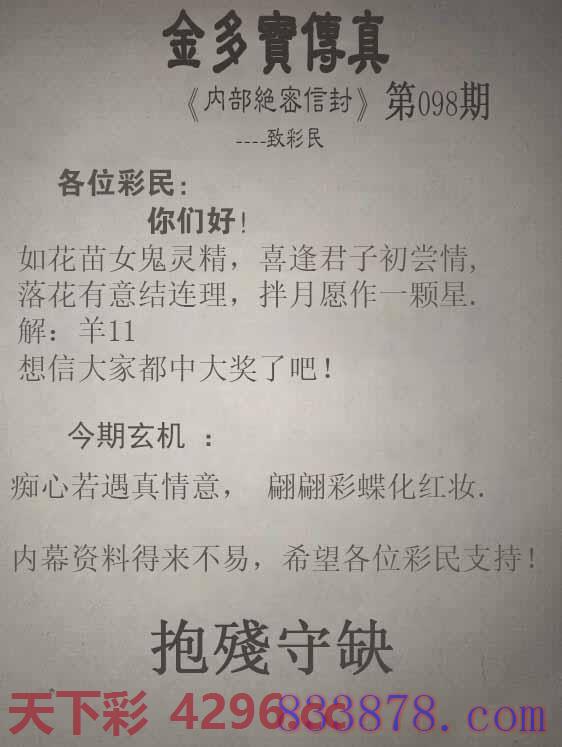 金多寶傳真
《内部絕密信封》第098期
----致彩民
各位彩民:
你们好!
如花苗女鬼灵精，喜逢君子初尝情,
落花有意结连理，拌月愿作一颗星.
解：羊11
想信大家都中大奖了吧!
今期玄机 ：
痴心若遇真情意， 翩翩彩蝶化红妆.
内幕资料得来不易，希望各位彩民支持!
抱殘守缺
天下彩 4296.cc
883878.com